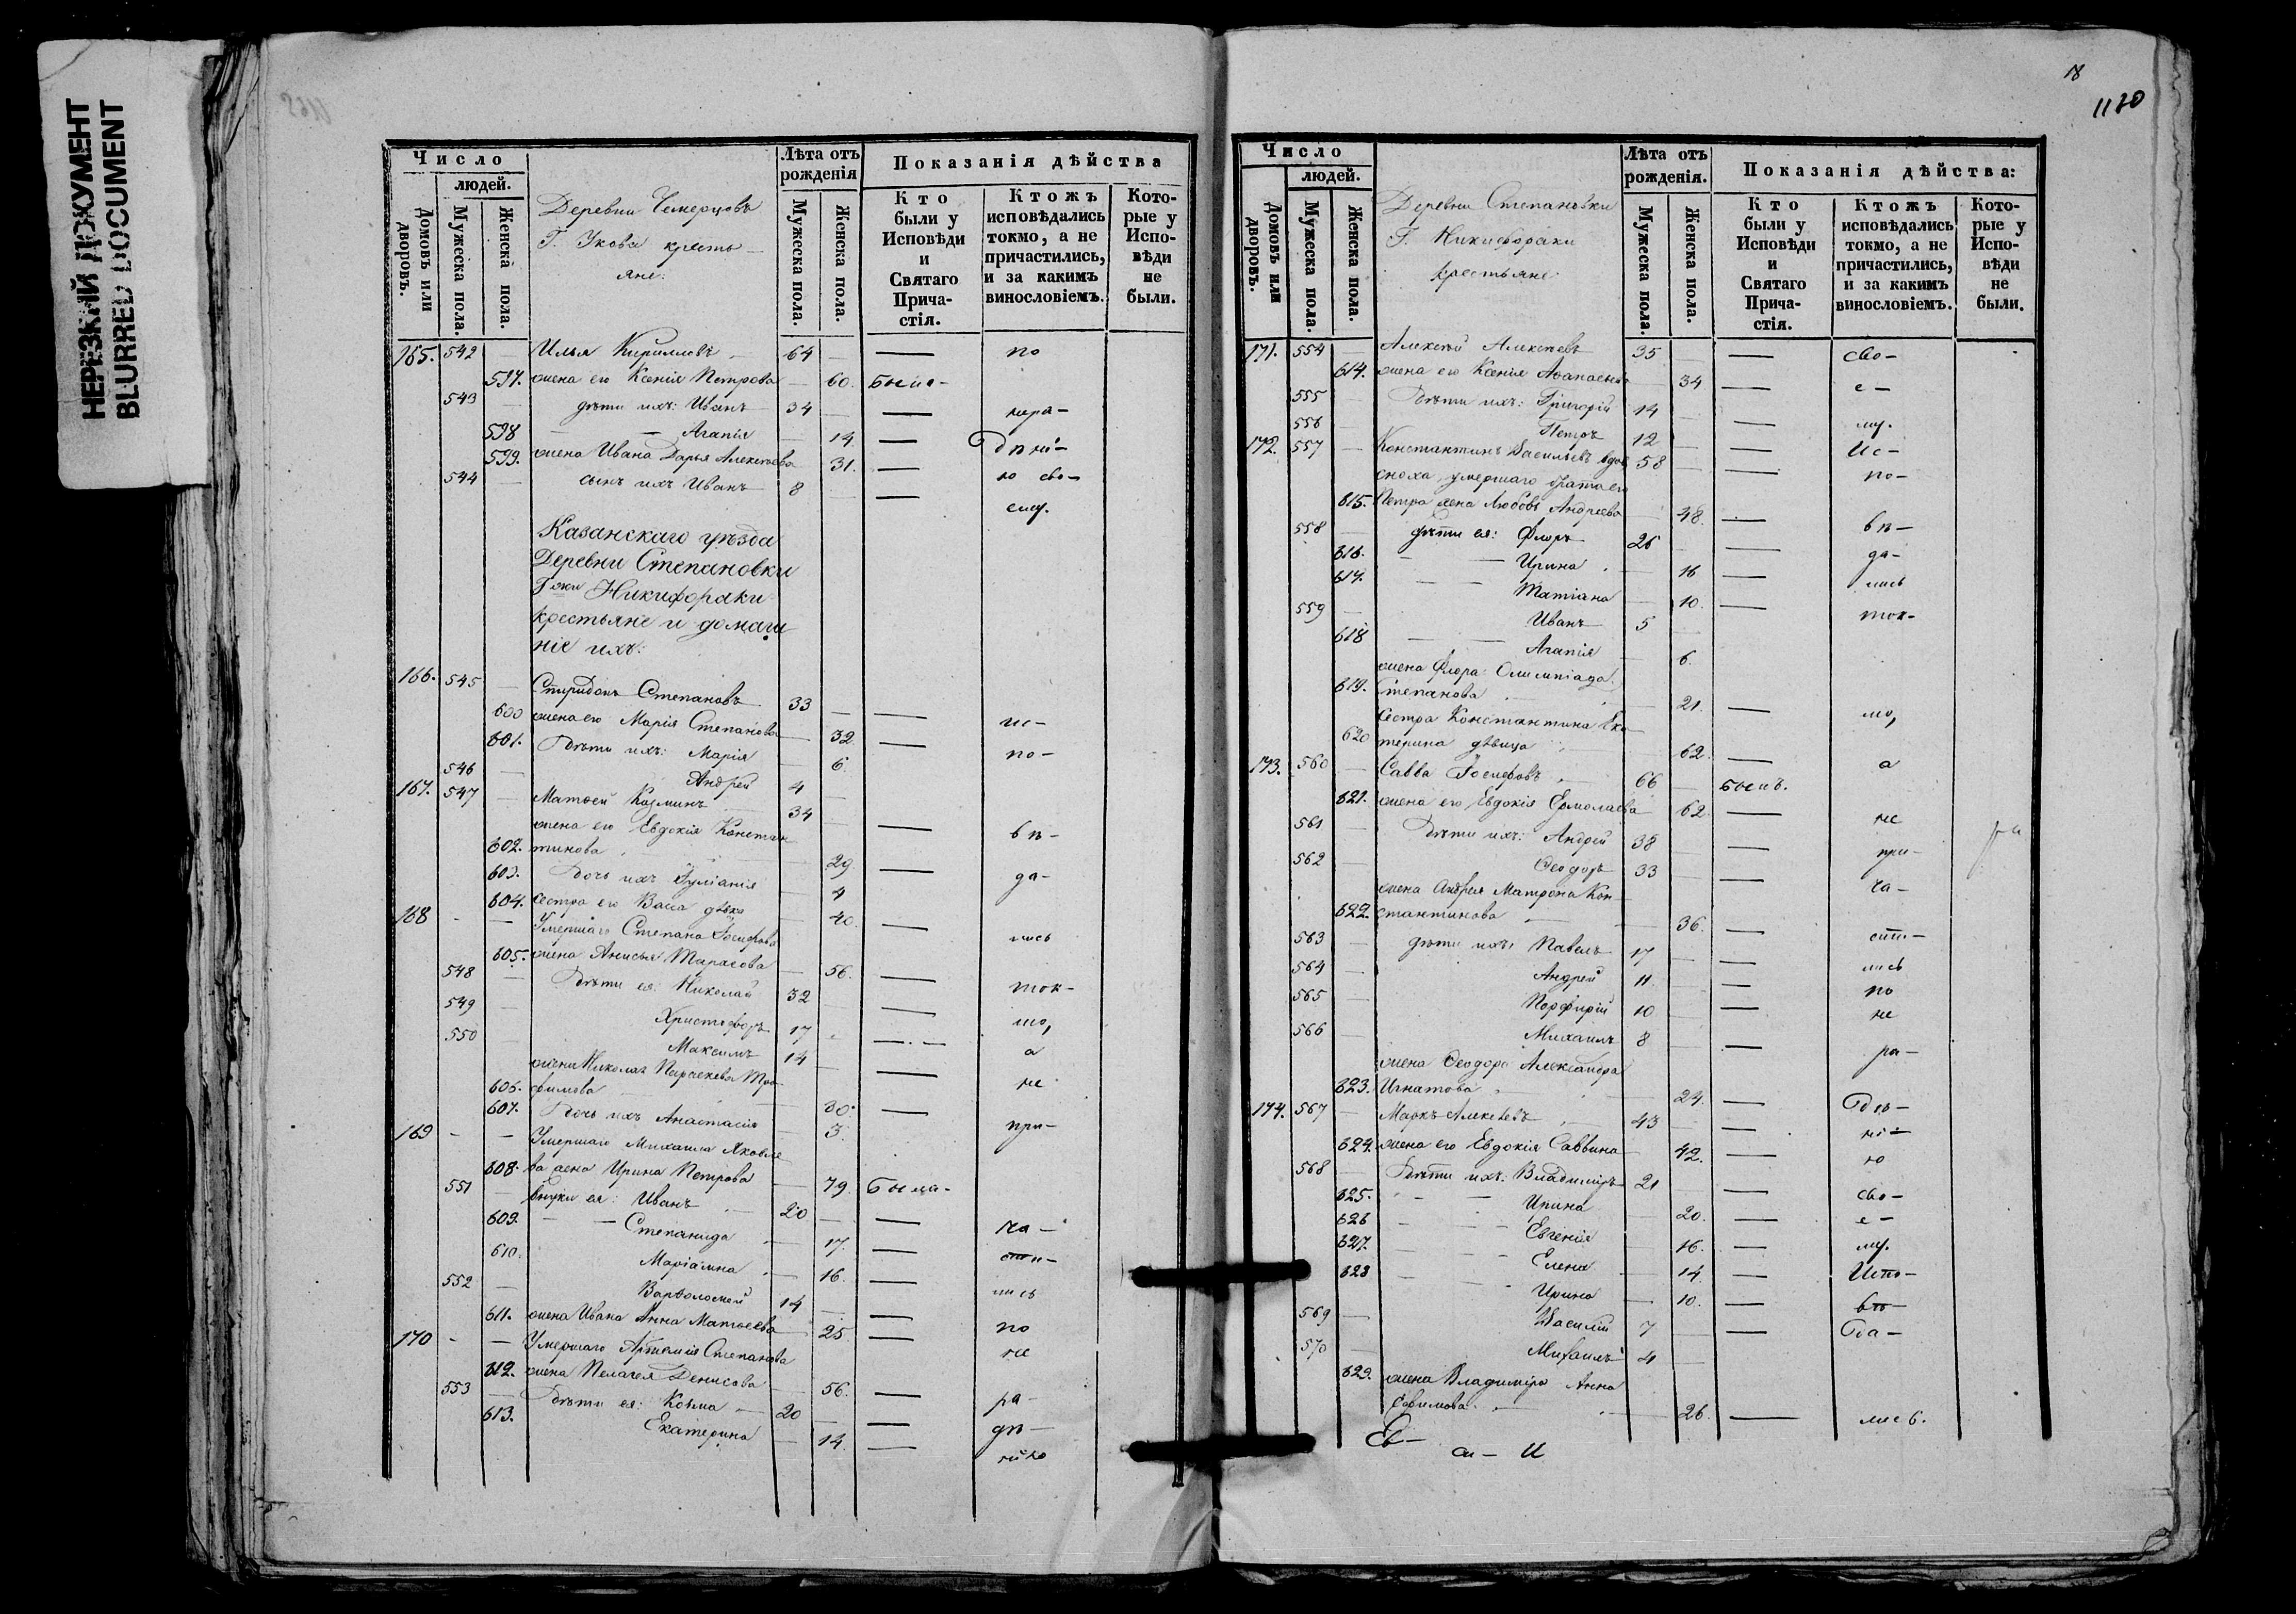 НЕРЕЗКИЙ ДОКУМЕНТ
BLURRED DOCUMENT
Число
людей.
Домовъ или дворовъ.
Мужеска пола.
Женска пола.
Деревни
Г. Укова кресть-
яне:
Лѣта отъ рожденія
Мужеска пола.
Женска пола.
Показанія дѣйства
Кто были у Исповѣди и Святаго Прича-стія.
Ктожъ исповѣдались токмо, а не причастились, и за какимъ винословіемъ.
Кото-рые у Испо-вѣди не были.
165. 542 — Илья Кирилловъ — 64 — — по
597. жена его Ксенія Петрова — 60. Была-
543 — дѣти ихъ: Иванъ 34 — — нера-
598 — — Агапія — 14 — дѣні-
599. жена Ивана Дарья Алексѣева 31. — ю сво-
544 — сынъ ихъ Иванъ 8 — — ему.
Казанскаго уѣзда
Деревни Степановки
Г-жи Никифораки
крестьяне и домаш
ніе ихъ:
166. 545 — Спиридонъ Степановъ 33 — — ис-
600 жена его Марія Степанова — 32 — по-
601. Дѣти ихъ: Марія — 6.
546 — Андрей 4 —
167. 547 — Матѳей Козминъ 34 — — вѣ-
жена его Евдокія Констан
602. тинова — 29 — да-
603. Дочь ихъ Іуліанія — 4
604. Сестра его Васса дѣвка — 40. — лись
168 - — Умершаго Степана Іосифова
605. жена Анисья Тарасова — 56. — ток-
548 — Дѣти ея: Николай 32 — — мо,
549 — Христофоръ 17 — — а
550 — Максимъ 14 — — не
жена Николая Параскева Тро
606. фимова — 30. — при-
607. Дочь ихъ Анастасія — 3.
169 - — Умершаго Михаила Яковле
608. ва жена Ирина Петрова — 79 Была-
551 — внуки ея: Иванъ 20 — — ча-
609. — — Степанида — 17. — сти-
610. Маріамна — 16. — лись
552 — Варѳоломей 14 — — по
611. жена Ивана Анна Матѳеева 25 — не
170 - — Умершаго Артемія Степанова
612. жена Пелагея Денисова — 56. — ра-
553 — Дѣти ея: Козма — 20 — — дѣ-
613. Екатерина — 14. — нію
18
1170
Число
людей.
Домовъ или дворовъ.
Мужеска пола.
Женска пола.
Деревни Степановки
Г. Никифораки
крестьяне
Лѣта отъ рожденія.
Мужеска пола.
Женска пола.
Показанія дѣйства:
Кто были у Исповѣди и Святаго Прича-стія.
Ктожъ исповѣдались токмо, а не причастились, и за какимъ винословіемъ.
Кото-рые у Испо-вѣди не были.
171. 554 — Алексѣй Алексѣевъ 35 — — сво-
614. жена его Ксенія Аѳанасьева — 34 — е-
555 — Дѣти ихъ: Григорій 14 — — му.
556 — Петръ 12 — — Ис-
172. 557 — Константинъ Васильевъ вдов 58 — — по-
сноха, умершаго брата его
615. Петра жена Любовь Андреева — 48. — вѣ-
558 — дѣти ея: Флоръ 26 — — да-
616. — — Ирина — 16 — лись
617. — — Татіана — 10. — ток-
559 — Иванъ 5 —
618 — — Агапія — 6.
жена Флора Олимпіада
619. Степанова — 21. — мо,
Сестра Константина Ека
620 терина дѣвица — 62. — а
173. 560 — Савва Іосифовъ 66 — Былъ.
621. жена его Евдокія Ермолаева 62 — не
561 — Дѣти ихъ: Андрей 38 — — при-
562 — Ѳеодоръ 33 — — ча-
жена Андрея Матрона Кон
622. стантинова — 36. — сти-
563 — дѣти ихъ: Павелъ 17 — — лись
564 — Андрей 11 — — по
565 — Порфирій 10 — — не
566 — Михаилъ 8 — — ра-
жена Ѳеодора Александра
623. Игнатова — 24. — дѣ-
174. 567 — Маркъ Алексѣевъ 43 — — ні-
624. жена его Евдокія Саввина — 42. — ю
568 — Дѣти ихъ: Владиміръ 21 — — сво-
625. — — Ирина — 20. — е-
626 — — Евгенія — 16. — му.
627. — — Елена — 14. — Испо-
628 — — Ирина — 10. — вѣ-
569 — Василій 7 — — да-
570 — Михаилъ 4 —
629. жена Владиміра Анна
Ефимова — 26. — лись.